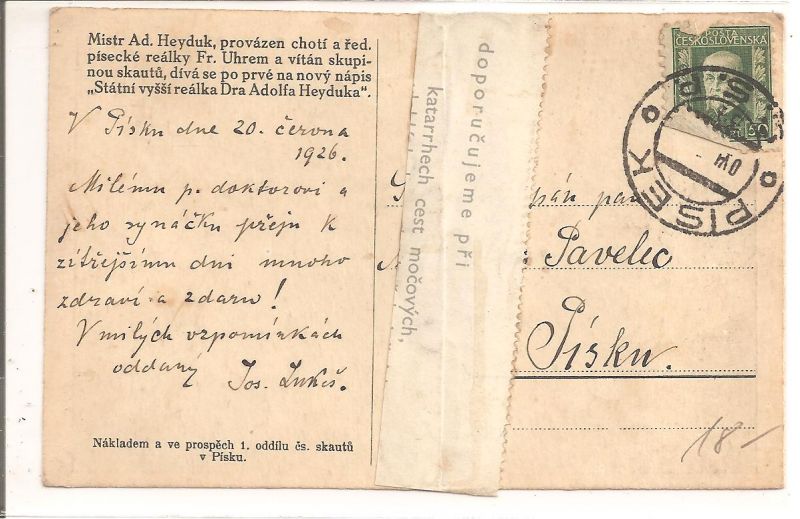 Mistr Ad. Heyduk, provázen chotí a řed.
písecké reálky Fr. Uhrem a vítán skupi-
nou skautů, dívá se po prvé na nový nápis
„Státní vyšší reálka Dra Adolfa Heyduka“.
V Písku dne 20. června
1926.
Milému p. doktorovi a
jeho synáčku přeju k
zítřejšímu dni mnoho
zdraví a zdaru!
V milých vzpomínkách
oddaný Jos. Lukeš.
Nákladem a ve prospěch 1. oddílu čs. skautů
v Písku.
doporučujeme při
katarrhech cest močových,
pán pan
Pavelec
Písku.
POŠTA
ČESKOSLOVENSKÁ
50
PÍSEK
18-